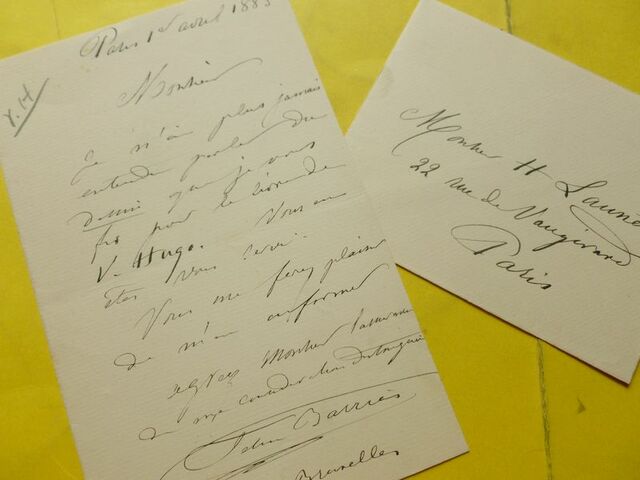 Paris 1er avril 1885
V.H
Monsieur
Je n'ai plus jamais
entendu parler du
dessin que je vous
fis pour le livre de
V. Hugo. Vous en
êtes vous servi.
Vous me ferez plaisir
de m'en informer
agréez Monsieur l'assurance
de ma considération distinguée
Felix Barrias
Bruxelles
Monsieur H Launette
22 rue de Vaugirard
Paris